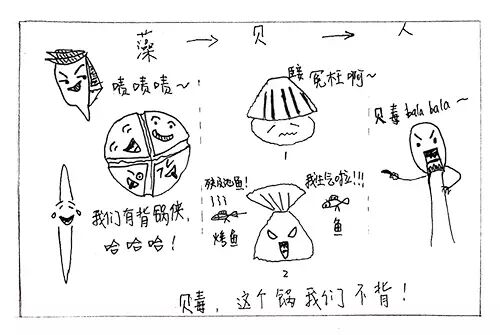 藻 → 贝 → 人
啧啧啧~
冤枉啊~
贝毒bala bala ~
1
我们有背锅侠,
哈哈哈!
烤鱼
我生气啦!!!
鱼
2
贝毒,这个锅我们不背!